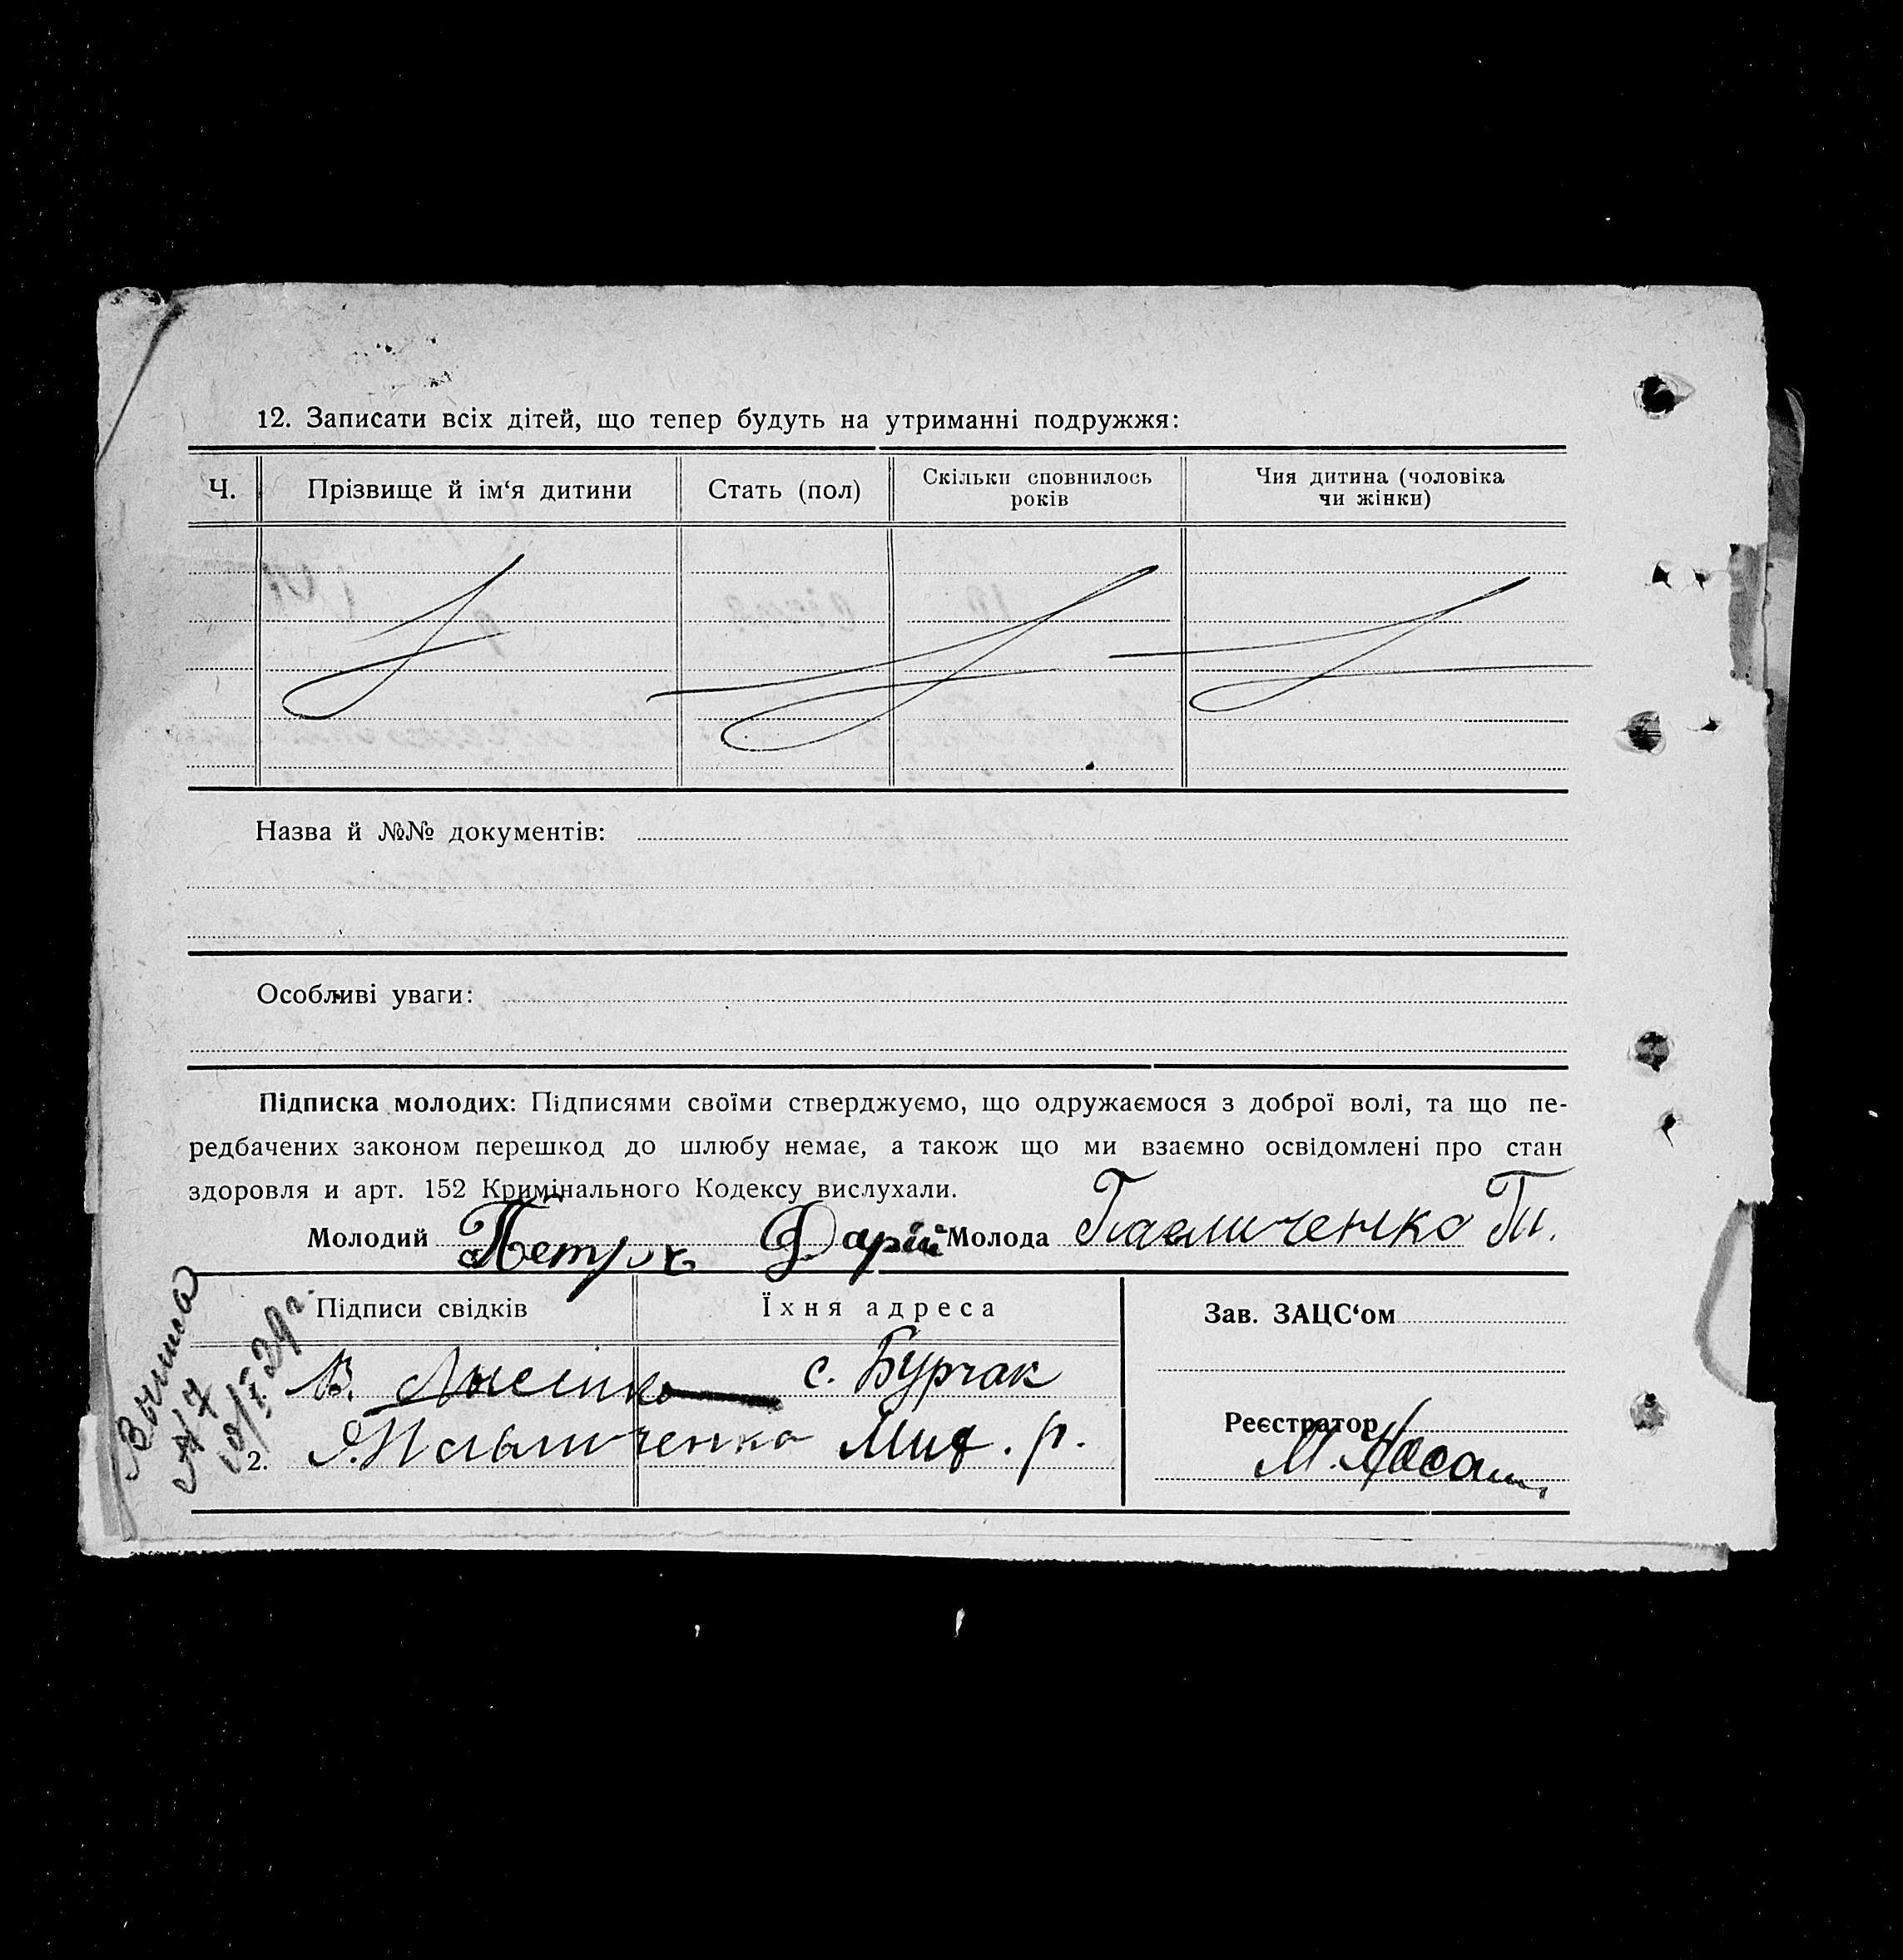 12. Записати всіх дітей, що тепер будуть на утриманні подружжя:
Ч. Прізвище й ім‘я дитини Стать (пол) Скільки сповнилось років Чия дитина (чоловіка чи жінки)
Назва й №№ документів:
Особливі уваги:
Підписка молодих: Підписями своїми стверджуємо, що одружаємося з доброї волі, та що пе-
редбачених законом перешкод до шлюбу немає, а також що ми взаємно освідомлені про стан
здоровля и арт. 152 Кримінального Кодексу вислухали.
Молодий Петрук Фарій Молода
Підписи свідків Їхня адреса
В. с. Бурчак
2. Я. Пальниченко Мих. р.
Зав. ЗАЦС‘ом
Реєстратор
М.
№ 7